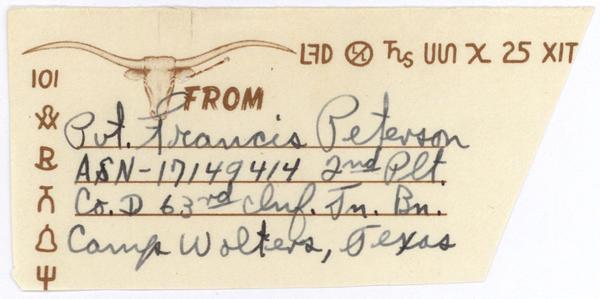 25 XIT
101
FROM
Pvt. Francis Peterson
ASN-17149414 2nd Plt.
Co. D 63rd Inf. Tn. Bn.
Camp Wolters, Texas